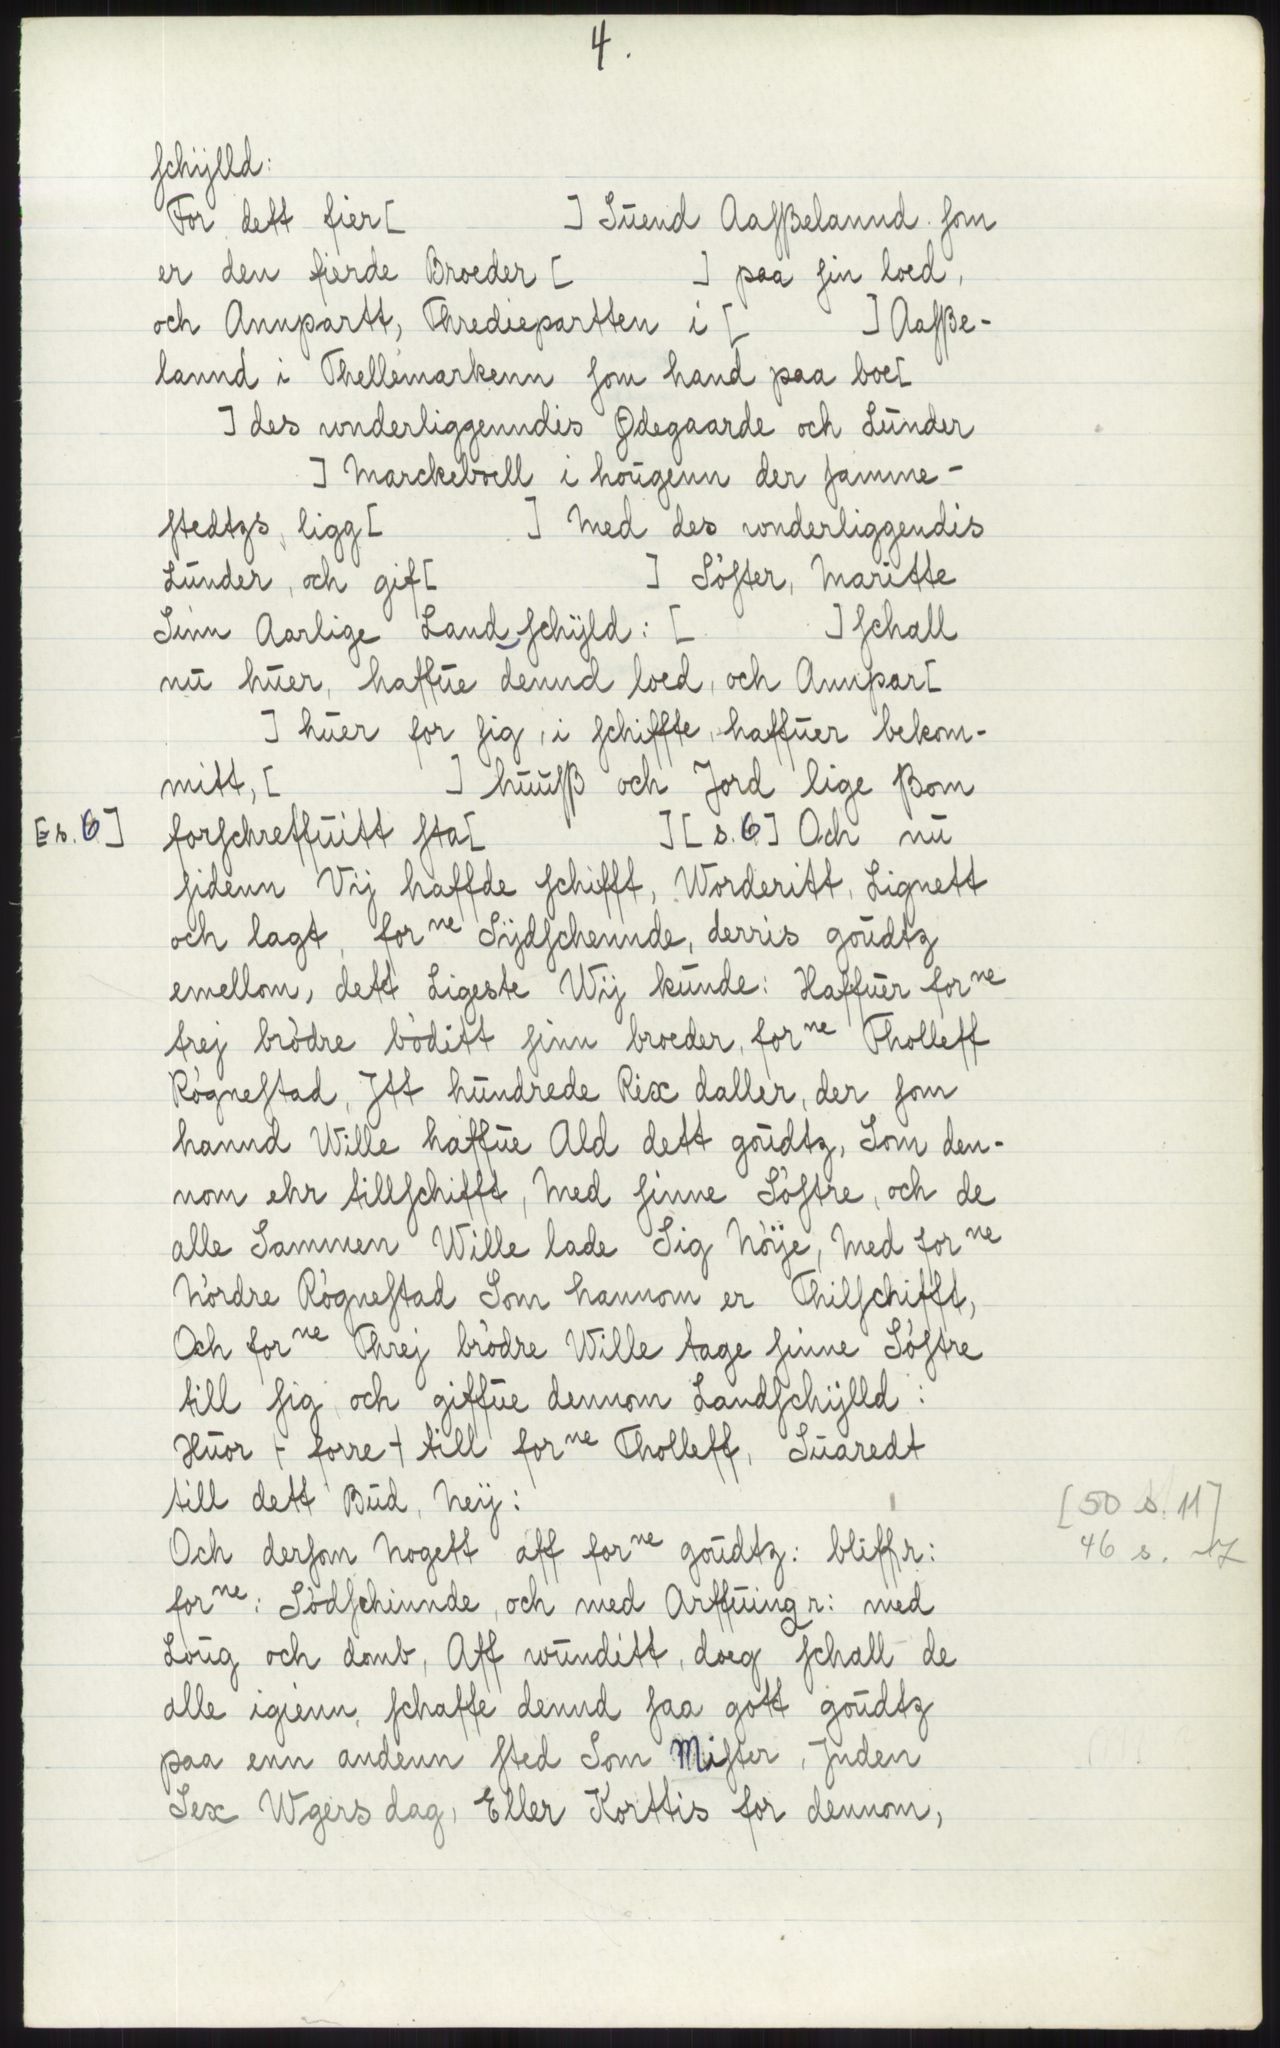 4.
schÿlld:
For dett fier[ ] Suend Aassßelannd som
er den fierde Broeder [ ] paa sin loed,
och Annpartt, Thrediepartten i [ ] Aasße-
lannd i Thellemarkenn som hand paa boe[
] des wnderliggenndis Ødegaarde och Lunder
] Marckeboell i hougenn der samme-
stedtzs, ligg[ ] Med des wnderliggendis
Lunder, och gif[ ] Söster, Maritte
Sinn Aarlige Land schÿld: [ ] schall
nu huer, haffue dennd loed, och Annpar[
] huer for sig, i schiffte, haffuer bekom-
mitt, [ ] huusß och Jord lige ßom
[s. 6] forschreffuitt sta[ ] [s. 6] Och nu
sidenn Vij haffde schifft, Worderitt, Lignett
och lagt, for ne Sÿdschennde, derris goudtz
emellom, dett Ligeste Wij kunde: Haffuer for ne
trej brödreböditt sinn broeder, for ne Tholleff
Rögnestad, Jtt hundrede Rix daller, der som
hannd Wille haffue Ald dett goudtz, Som den-
nom ehr tillschifft, Med sinne Söstre, och de
alle Sammen Wille lade Sig Nöÿe, Med for ne
Nördre Rögnestad Som hannom er Thilschifft,
Och for ne Threj brödre Wille tage sinne Söstre
till sig och giffue dennom Landschÿlld:
Huor + forre + till for ne Tholleff, Suaredt
till dett Bud, Neÿ:
[50 s. 11]
Och dersom Nogett aff for ne goudtz: bliffr:
46 s. 17
for ne: Södschinnde, och med Arffuingr: med
Loug och domb, Aff wunditt, doeg schall de
alle igienn, schaffe dennd saa gott goudtz
paa enn andenn sted Som Mister, Jnden
Sex Wgers dag, Eller Korttis for dennom,